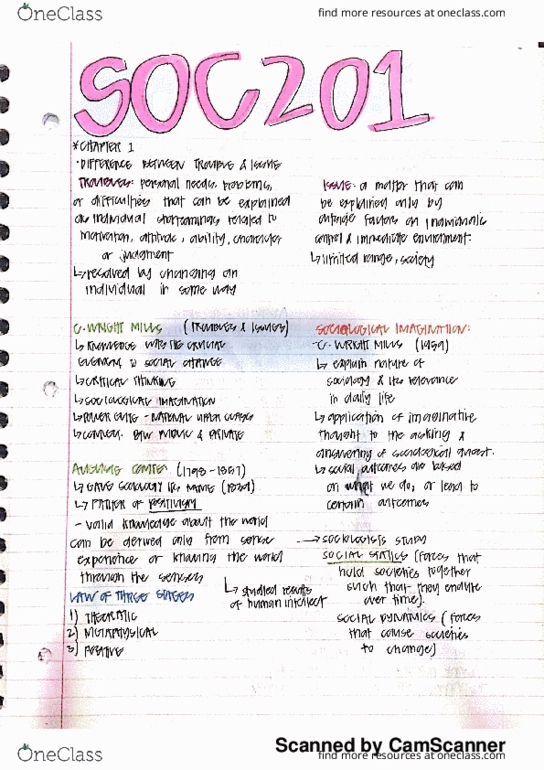 OneClass
find more resources at oneclass.com
SOC201
*CHAPTER 1
• DIFFERENCE BETWEEN TROUBLE & ISSUE
TROUBLES: personal needs, problems,
or difficulties that can be explained
as individual shortcomings related to
motivation, attitude, ability, character
or judgment
↳ resolved by changing an
individual in some way
ISSUE: a matter that can
be explained only by
outside factors an individuals
control & immediate environment.
↳ limited range, society
C. WRIGHT MILLS (TROUBLES & ISSUES)
↳ KNOWLEDGE WAS THE CRUCIAL
ELEMENT TO SOCIAL CHANGE
↳ CRITICAL THINKING
↳ SOCIOLOGICAL IMAGINATION
↳ POWER ELITE - NATIONAL UPPER CLASSES
↳ CONNECT. B/W PUBLIC & PRIVATE
SOCIOLOGICAL IMAGINATION:
- C. WRIGHT MILLS (1959)
↳ explain nature of
sociology & its relevance
in daily life
↳ application of imaginative
thought to the asking &
answering of sociological quest.
↳ social outcomes are based
on what we do, or lead to
certain outcomes
AUGUSTE COMTE (1798-1857)
↳ GAVE SOCIOLOGY ITS NAME
↳ FATHER OF POSITIVISM
- valid knowledge about the world
can be derived only from sense
experience or knowing the world
through the senses
LAW OF THREE STAGES
↳ studied results
of human intellect
1) THEORATIC
2) METAPHYSICAL
3) POSITIVE
→ SOCIOLOGISTS STUDY
SOCIAL STATICS (forces that
hold societies together
such that they endure
over time).
SOCIAL DYNAMICS (forces
that cause societies
to change)
Scanned by CamScanner
OneClass
find more resources at oneclass.com